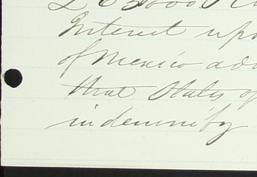 Interest upo
of Mexico adv
that States of
indemnify